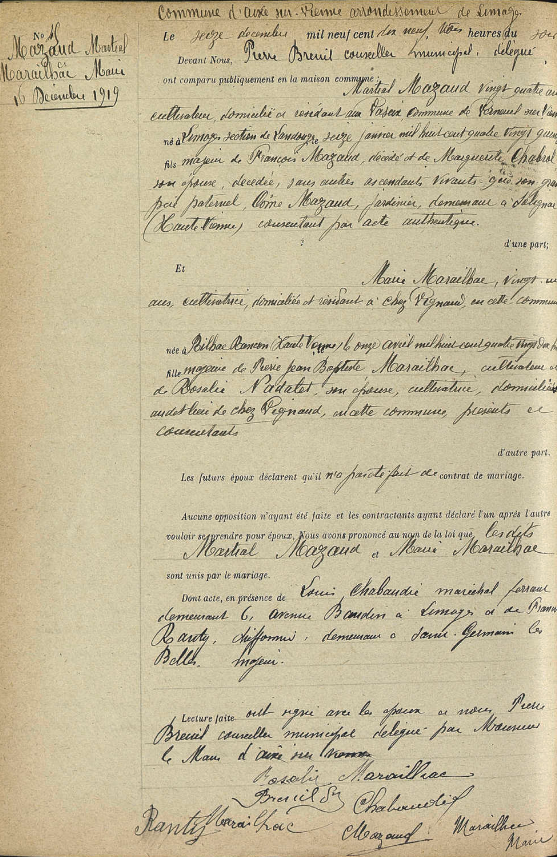 Commune d'aixe sur Vienne arrondissement de Limoges
No
Mazaud Martial
&
Marailhac Marie
16 Décembre 1919
Le seize décembre mil neuf cent dix neuf, heures du soir
Devant Nous, Pierre Breuil conseiller municipal, délégué
ont comparu publiquement en la maison commune :
Martial Mazaud vingt quatre
cultivateur, domicilié et résidant au commune de Verneuil sur
né à Limoges section de Landouge le seize janvier mil huit cent quatre vingt
fils majeur de François Mazaud, décédé et de Marguerite Chabrol
son épouse, décédée, sans autres ascendants vivants que son
père paternel, Mazaud, jardinier, demeurant à Solignac
(Haute Vienne) consentant par acte authentique.
d'une part;
Et
Marie Marailhac, vingt
ans, cultivatrice, domiciliée et résidant à chez Vignaud, en cette commune
née à Rilhac Rancon (Haute Vienne) le onze avril mil huit cent quatre vingt
fille majeure de Pierre Jean Baptiste Marailhac, cultivateur et
de Rosalie Nadalet, son épouse, cultivatrice, domiciliés
au dit lieu de chez Vignaud, en cette commune, présents et
consentants
d'autre part.
Les futurs époux déclarent qu'il n'a pas été fait de contrat de mariage.
Aucune opposition n'ayant été faite et les contractants ayant déclaré l'un après l'autre
vouloir se prendre pour époux, Nous avons prononcé au nom de la loi que les dits
Martial Mazaud et Marie Marailhac
sont unis par le mariage.
Dont acte, en présence de Louis Chabaudie maréchal ferrant
demeurant 6, avenue Baudin à Limoges et de
Ranty, chiffonnier, demeurant à Saint-Germain les
Belles, majeur.
Lecture faite ont signé avec les époux et nous, Pierre
Breuil conseiller municipal délégué par Monsieur
le Maire d'aixe sur Vienne
Rosalie Marailhac
Breuil Chabaudie
Ranty Marailhac
Mazaud Marailhac
Marie